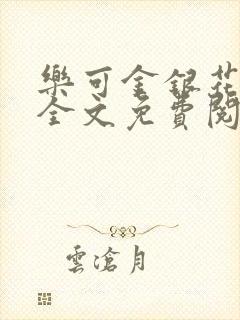 樂可金銀花
全文免費閱
雲滄月